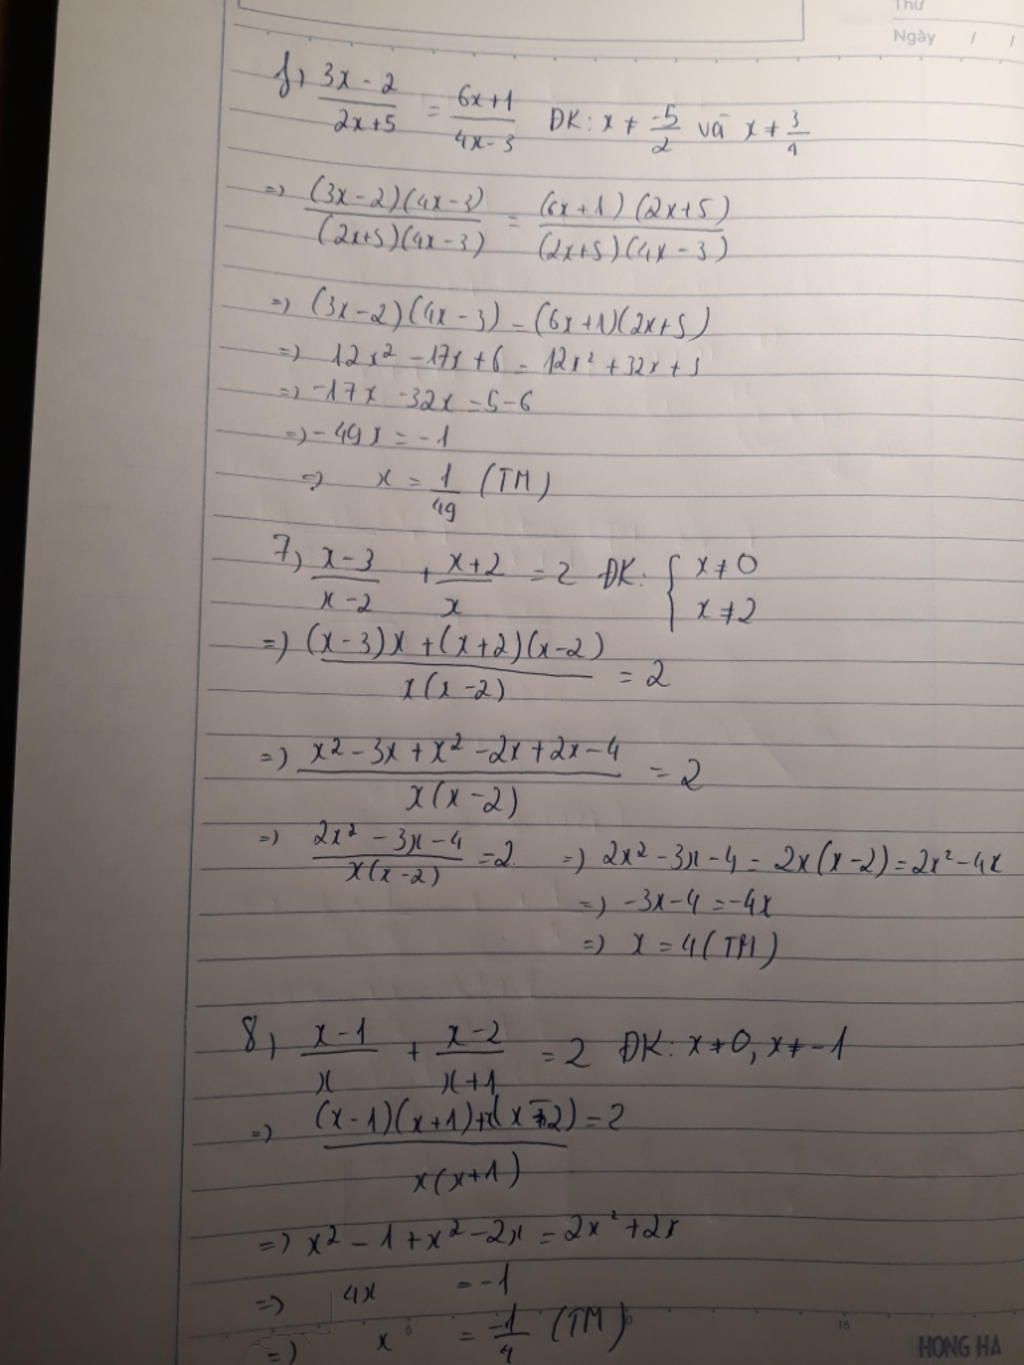 Thứ
Ngày / /
f) (3x - 2)/(2x + 5) = (6x + 1)/(4x - 3) ĐK: x ≠ -5/2 và x ≠ 3/4
=> (3x - 2)(4x - 3)/(2x+5)(4x - 3) = (6x + 1)(2x + 5)/(2x+5)(4x - 3)
=> (3x - 2)(4x - 3) = (6x + 1)(2x + 5)
=> 12x² - 17x + 6 = 12x² + 32x + 5
=> -17x - 32x = 5 - 6
=> -49x = -1
=> x = 1/49 (TM)
7) (x - 3)/(x - 2) + (x + 2)/x = 2 ĐK: { x ≠ 0
x ≠ 2
=> ((x - 3)x + (x + 2)(x - 2))/(x(x - 2)) = 2
=> (x² - 3x + x² - 2x + 2x - 4)/(x(x - 2)) = 2
=> (2x² - 3x - 4)/(x(x - 2)) = 2 => 2x² - 3x - 4 = 2x(x - 2) = 2x² - 4x
=> -3x - 4 = -4x
=> x = 4 (TM)
8) (x - 1)/x + (x - 2)/(x + 1) = 2 ĐK: x ≠ 0, x ≠ -1
=> ((x - 1)(x + 1) + x(x - 2))/(x(x + 1)) = 2
=> x² - 1 + x² - 2x = 2x² + 2x
=> 4x = -1
=> x = -1/4 (TM)
5 15
HONG HA